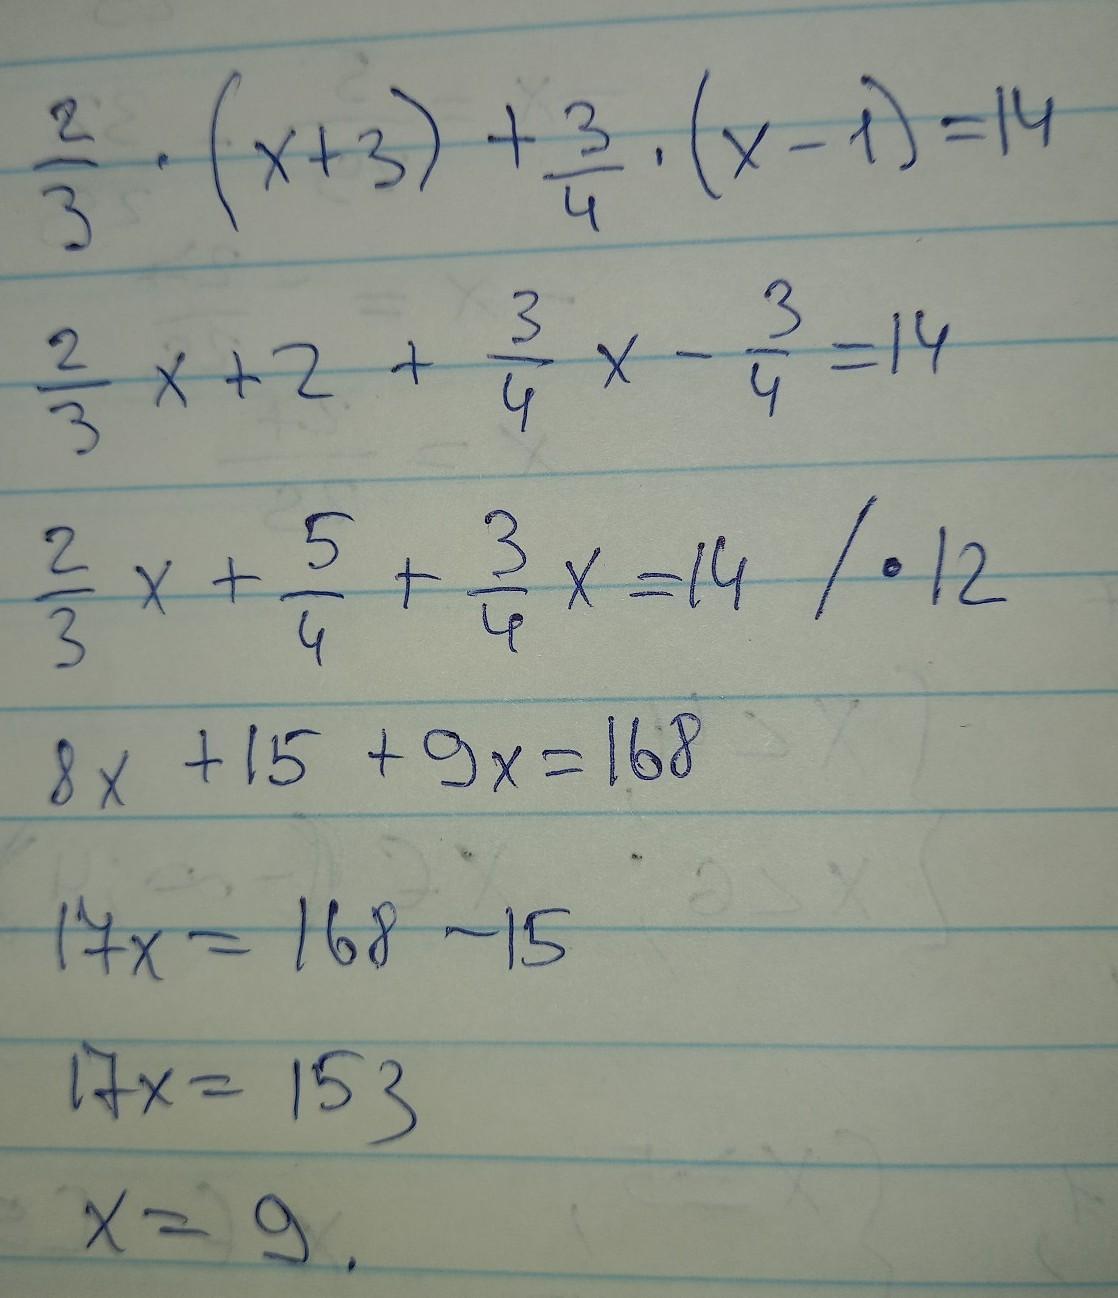 2/3 · (x+3) + 3/4 · (x-1) = 14
2/3 x + 2 + 3/4 x - 3/4 = 14
2/3 x + 5/4 + 3/4 x = 14 / · 12
8x + 15 + 9x = 168
17x = 168 - 15
17x = 153
x = 9.